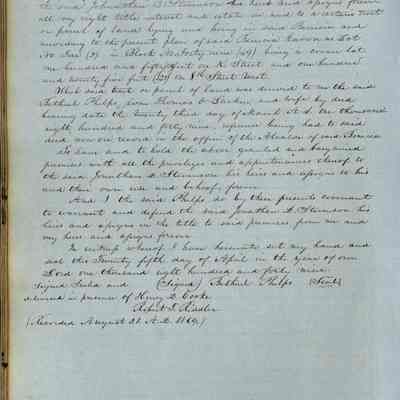 to said Jonathan D. Stevenson his heirs and assigns forever
all my right title interest and estate in and to a certain tract
or parcel of land lying and being in said Benicia and
according to the present plan of said Benicia known as Lot
No two (2) in Block forty nine (49) being a corner lot
one hundred and fifty feet on K Street and one hundred
and twenty five feet (125) on 8th Street West.
Which said tract or parcel of land was deeded to me the said
Bethuel Phelps, from Thomas O. Larkin and wife by deed
bearing date the twenty third day of March A.D. one thousand
eight hundred and forty nine, reference being had to said
deed now on record in the office of the Alcalde of said Benicia
To have and to hold the above granted and bargained
premises with all the privileges and appurtenances thereof to
the said Jonathan D. Stevenson his heirs and assigns to his
and their own use and behoof forever.
And I the said Phelps do by these presents covenant
to warrant and defend the said Jonathan D. Stevenson his
heirs and assigns in the title to said premises from me and
my heirs and assigns forever.
In witness whereof I have hereunto set my hand and
seal this Twenty fifth day of April in the year of our
Lord one thousand eight hundred and forty nine.
Signed Sealed and (Signed) Bethuel Phelps (Seal)
delivered in presence of Henry D. Cooke
Robert T. Ridley
(Recorded August 21. A.D. 1849.)